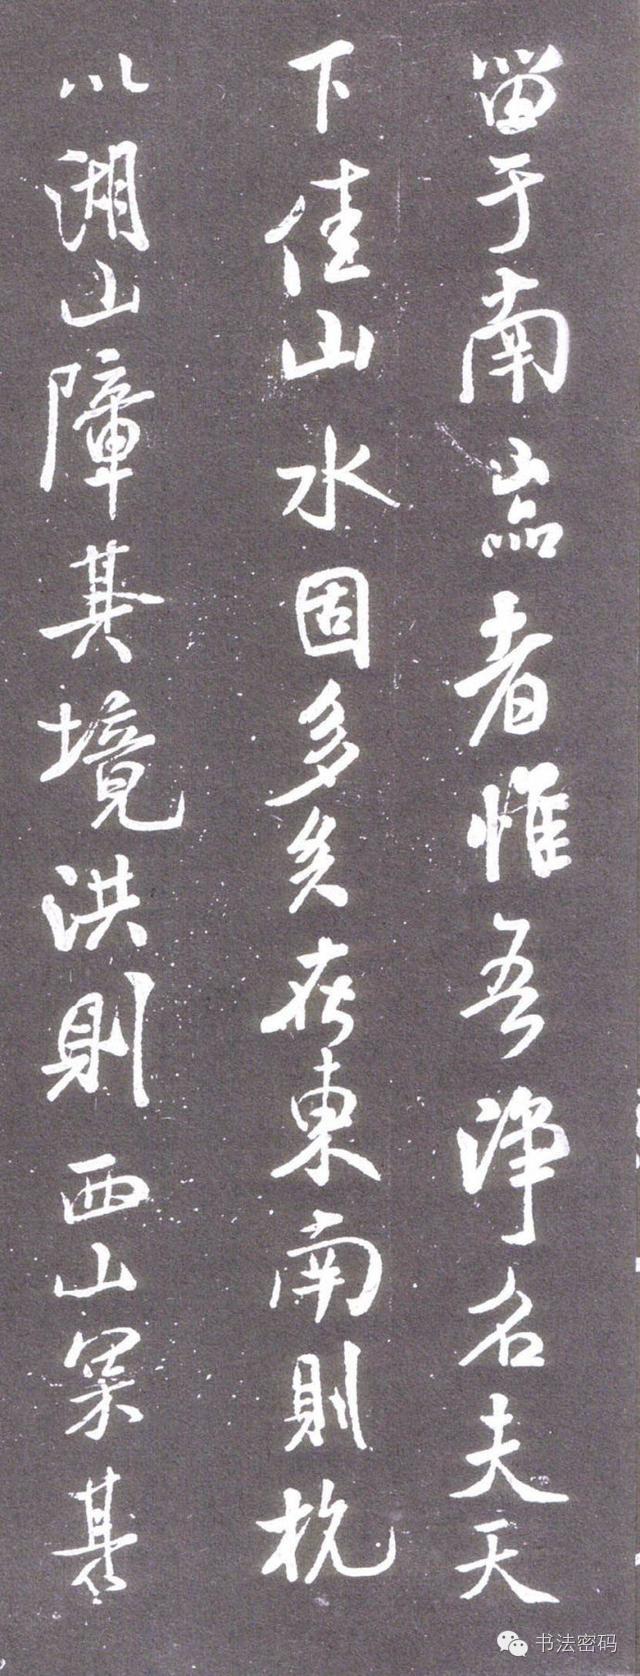 留于南嵒者惟吾淨名夫天
下佳山水固多矣在東南則杭
以湖山障其境洪則西山其
书法密码